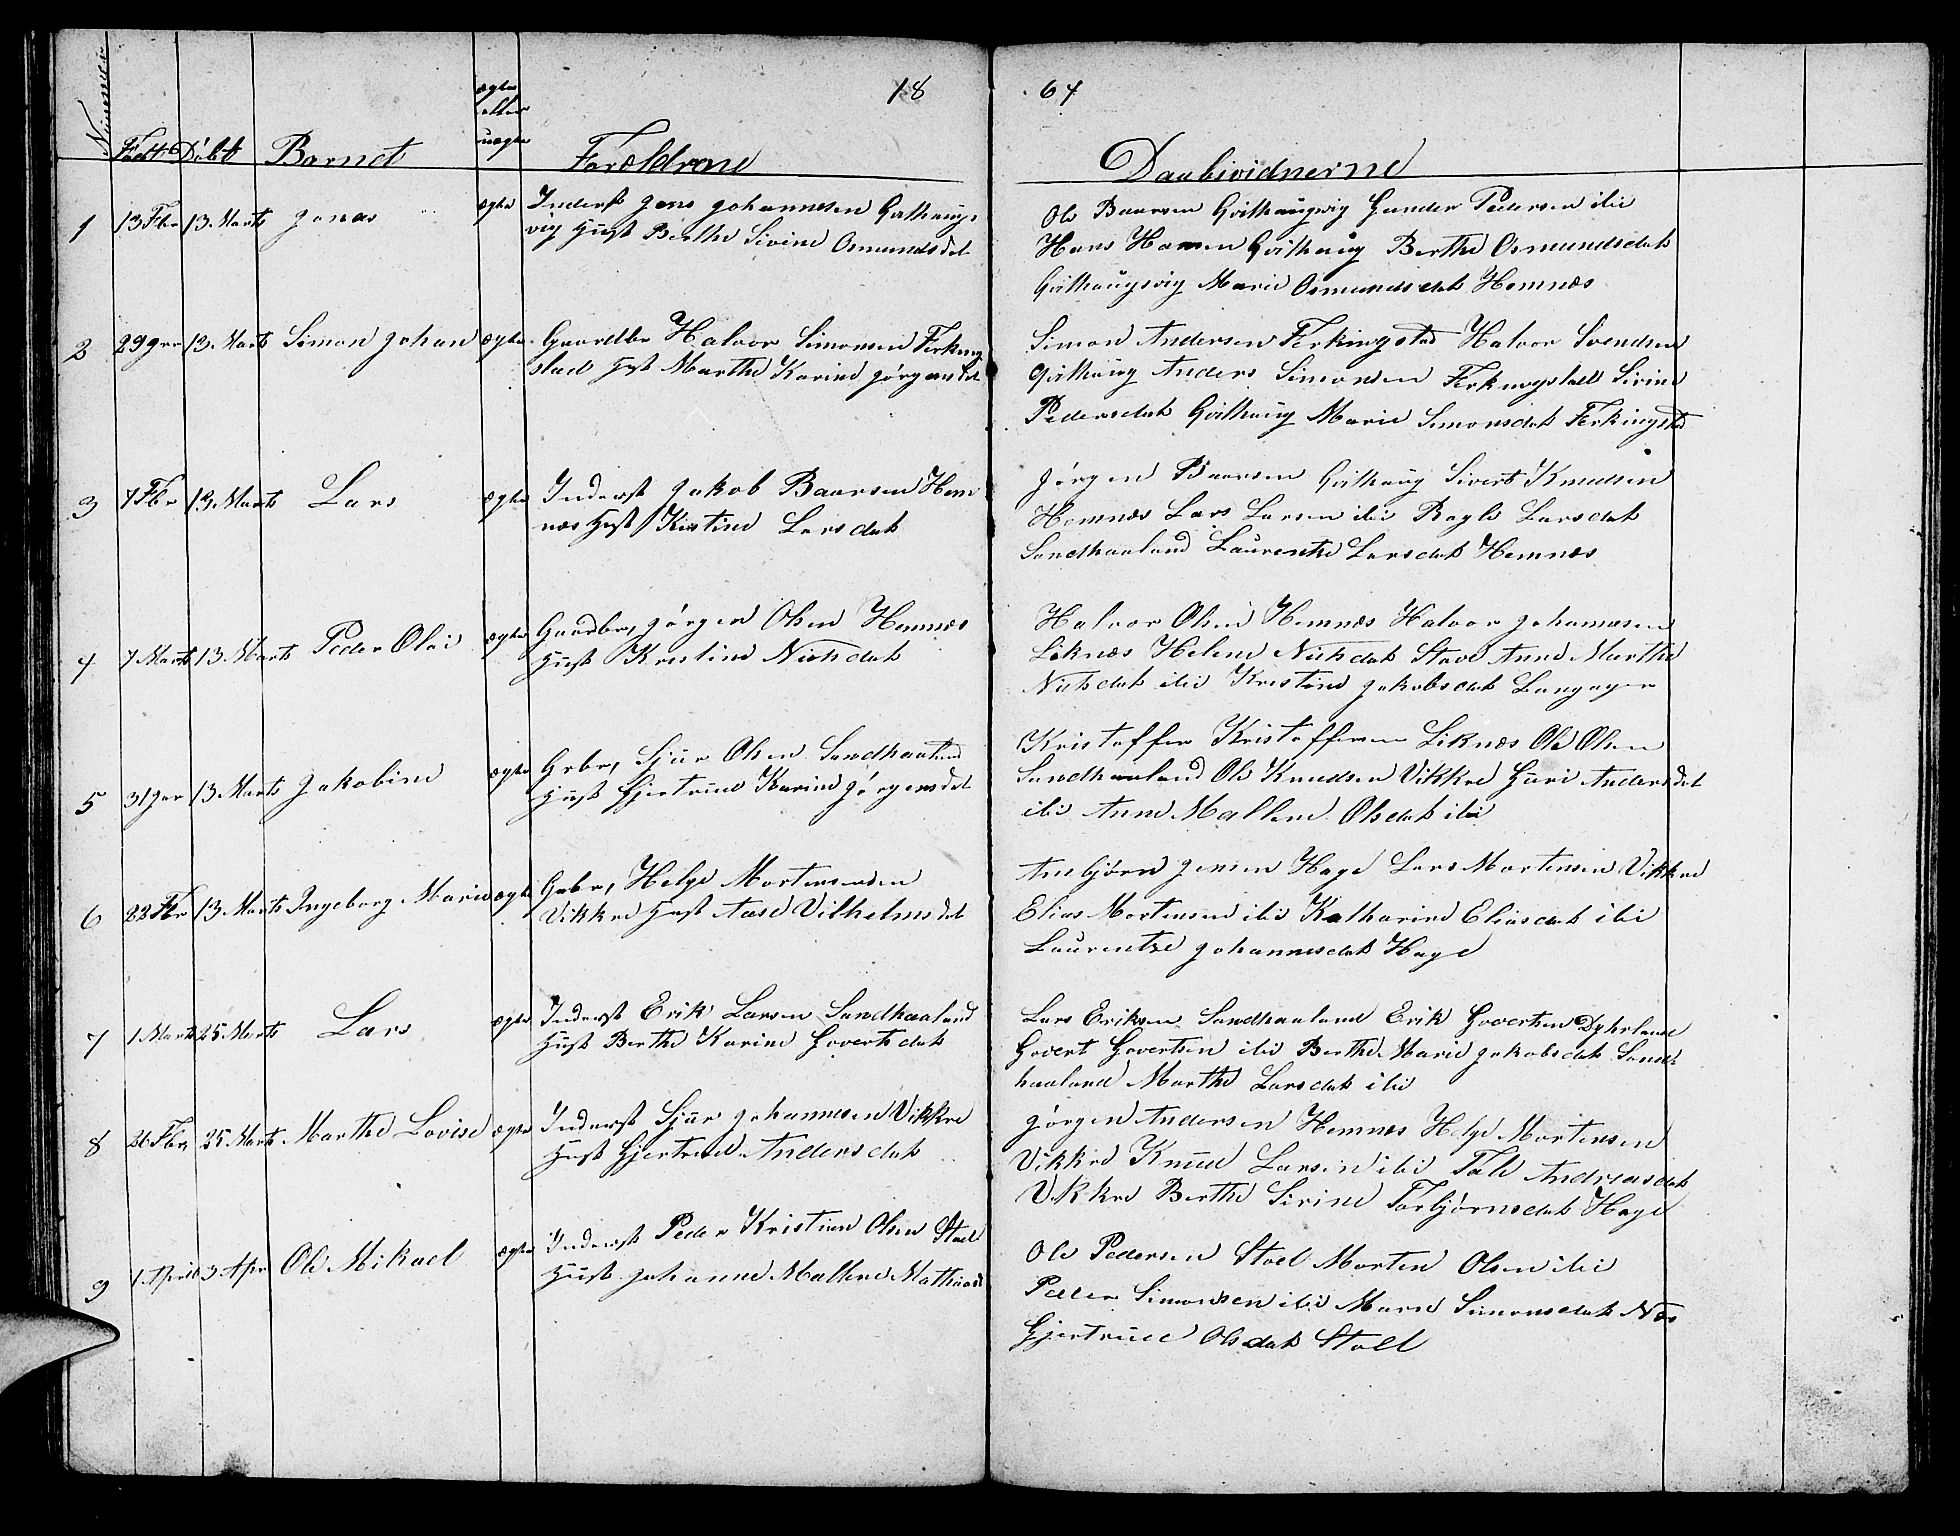 18 64
Nummer Født Døbt Barnet ægte eller uægte Forældrene Daabsvidnerne
1 13 Fbr 13 Marts Jonas ægte Inderst Jens Johannesen Qvilhaugs
vig Hust Berthe Sivine Osmundsdet
Ole Baarsen Qvilhaugsvig Gunder Pedersen ibi
Hans Hansen Qvilhaug Berthe Osmundsdat
Qvilhaugsvig Marie Osmundsdat Hemnæs
2 29 Jnr 13 Marts Simon Johan ægte Gaardbr Halvor Simonsen Ferking
stad Hst Marthe Karine Jørgensdet
Simon Andersen Ferkingstad Halvor Svendsen
Qvilhaug Anders Simonsen Ferkingstad Sirine
Pedersdat Qvilhaug Marie Simonsdat Ferkingstd
3 7 Fbr 13 Marts Lars ægte Inderst Jakob Baarsen Hem
næs Hust Kirstine Larsdat
Jørgen Baarsen Qvilhaug Sivert Knudsen
Hemnæs Lars Larsen ibi Ragle Larsdat
Sandhaaland Laurentze Larsdat Hemnæs
4 7 Marts 13 Marts Peder Olai ægte Gaardbr, Jørgen Olsen Hemnæs
Hust Kristine Nielsdat
Halvor Olsen Hemnæs Halvor Johannesen
Liknæs Helene Nielsdat Stave Anne Marthe
Nielsdat ibi Kristine Jakobsdat Langager
5 31 Jnr 13 Marts Jakobine ægte Grbr, Sjur Olsen Sandhaaland
Hust Gjertrine Karine Jørgensdet
Kristoffer Kristoffersen Liknæs Ole Olsen
Sandhaaland Ole Knudsen Vikkre Guri Andersdet
ibi Anne Mallene Olsdat ibi
6 22 Fbr 13 Marts Ingeborg Marie ægte Grbr, Helge Mortensen
Vikkre Hust Aase Vilhelmsdet
Aanbjørn Jensen Hage Lars Mortensen Vikkre
Elias Mortensen ibi Katharine Eliasdat ibi
Laurentze Johannesdat Hage
7 1 Marts 25 Marts Lars ægte Inderst Erik Larsen Sandhaaland
Hust Berthe Karine Govertsdat
Lars Eriksen Sandhaaland Erik Govertsen Dyhrland
Govert Govertsen ibi Berthe Marie Jakobsdat Sand
haaland Marthe Larsdat ibi
8 26 Fbr 25 Marts Marthe Lovise ægte Inderst Sjur Johannesen Vikkre
Hust Gjertrud Andersdat
Jørgen Andersen Hemnæs Helge Mortensen
Vikkre Knud Larsen ibi Tale Andreasdat
Vikkre Berthe Sirine Torbjørnsdat Hage
9 1 April 3 Apr Ole Mikael ægte Inderst Peder Kristian Olsen Stol
Hust Johanne Mallene
Ole Pedersen Stol Morten Olsen ibi
Peder Simonsen ibi Maren Simonsdat Næs
Gjertrud Olsdat Stoll